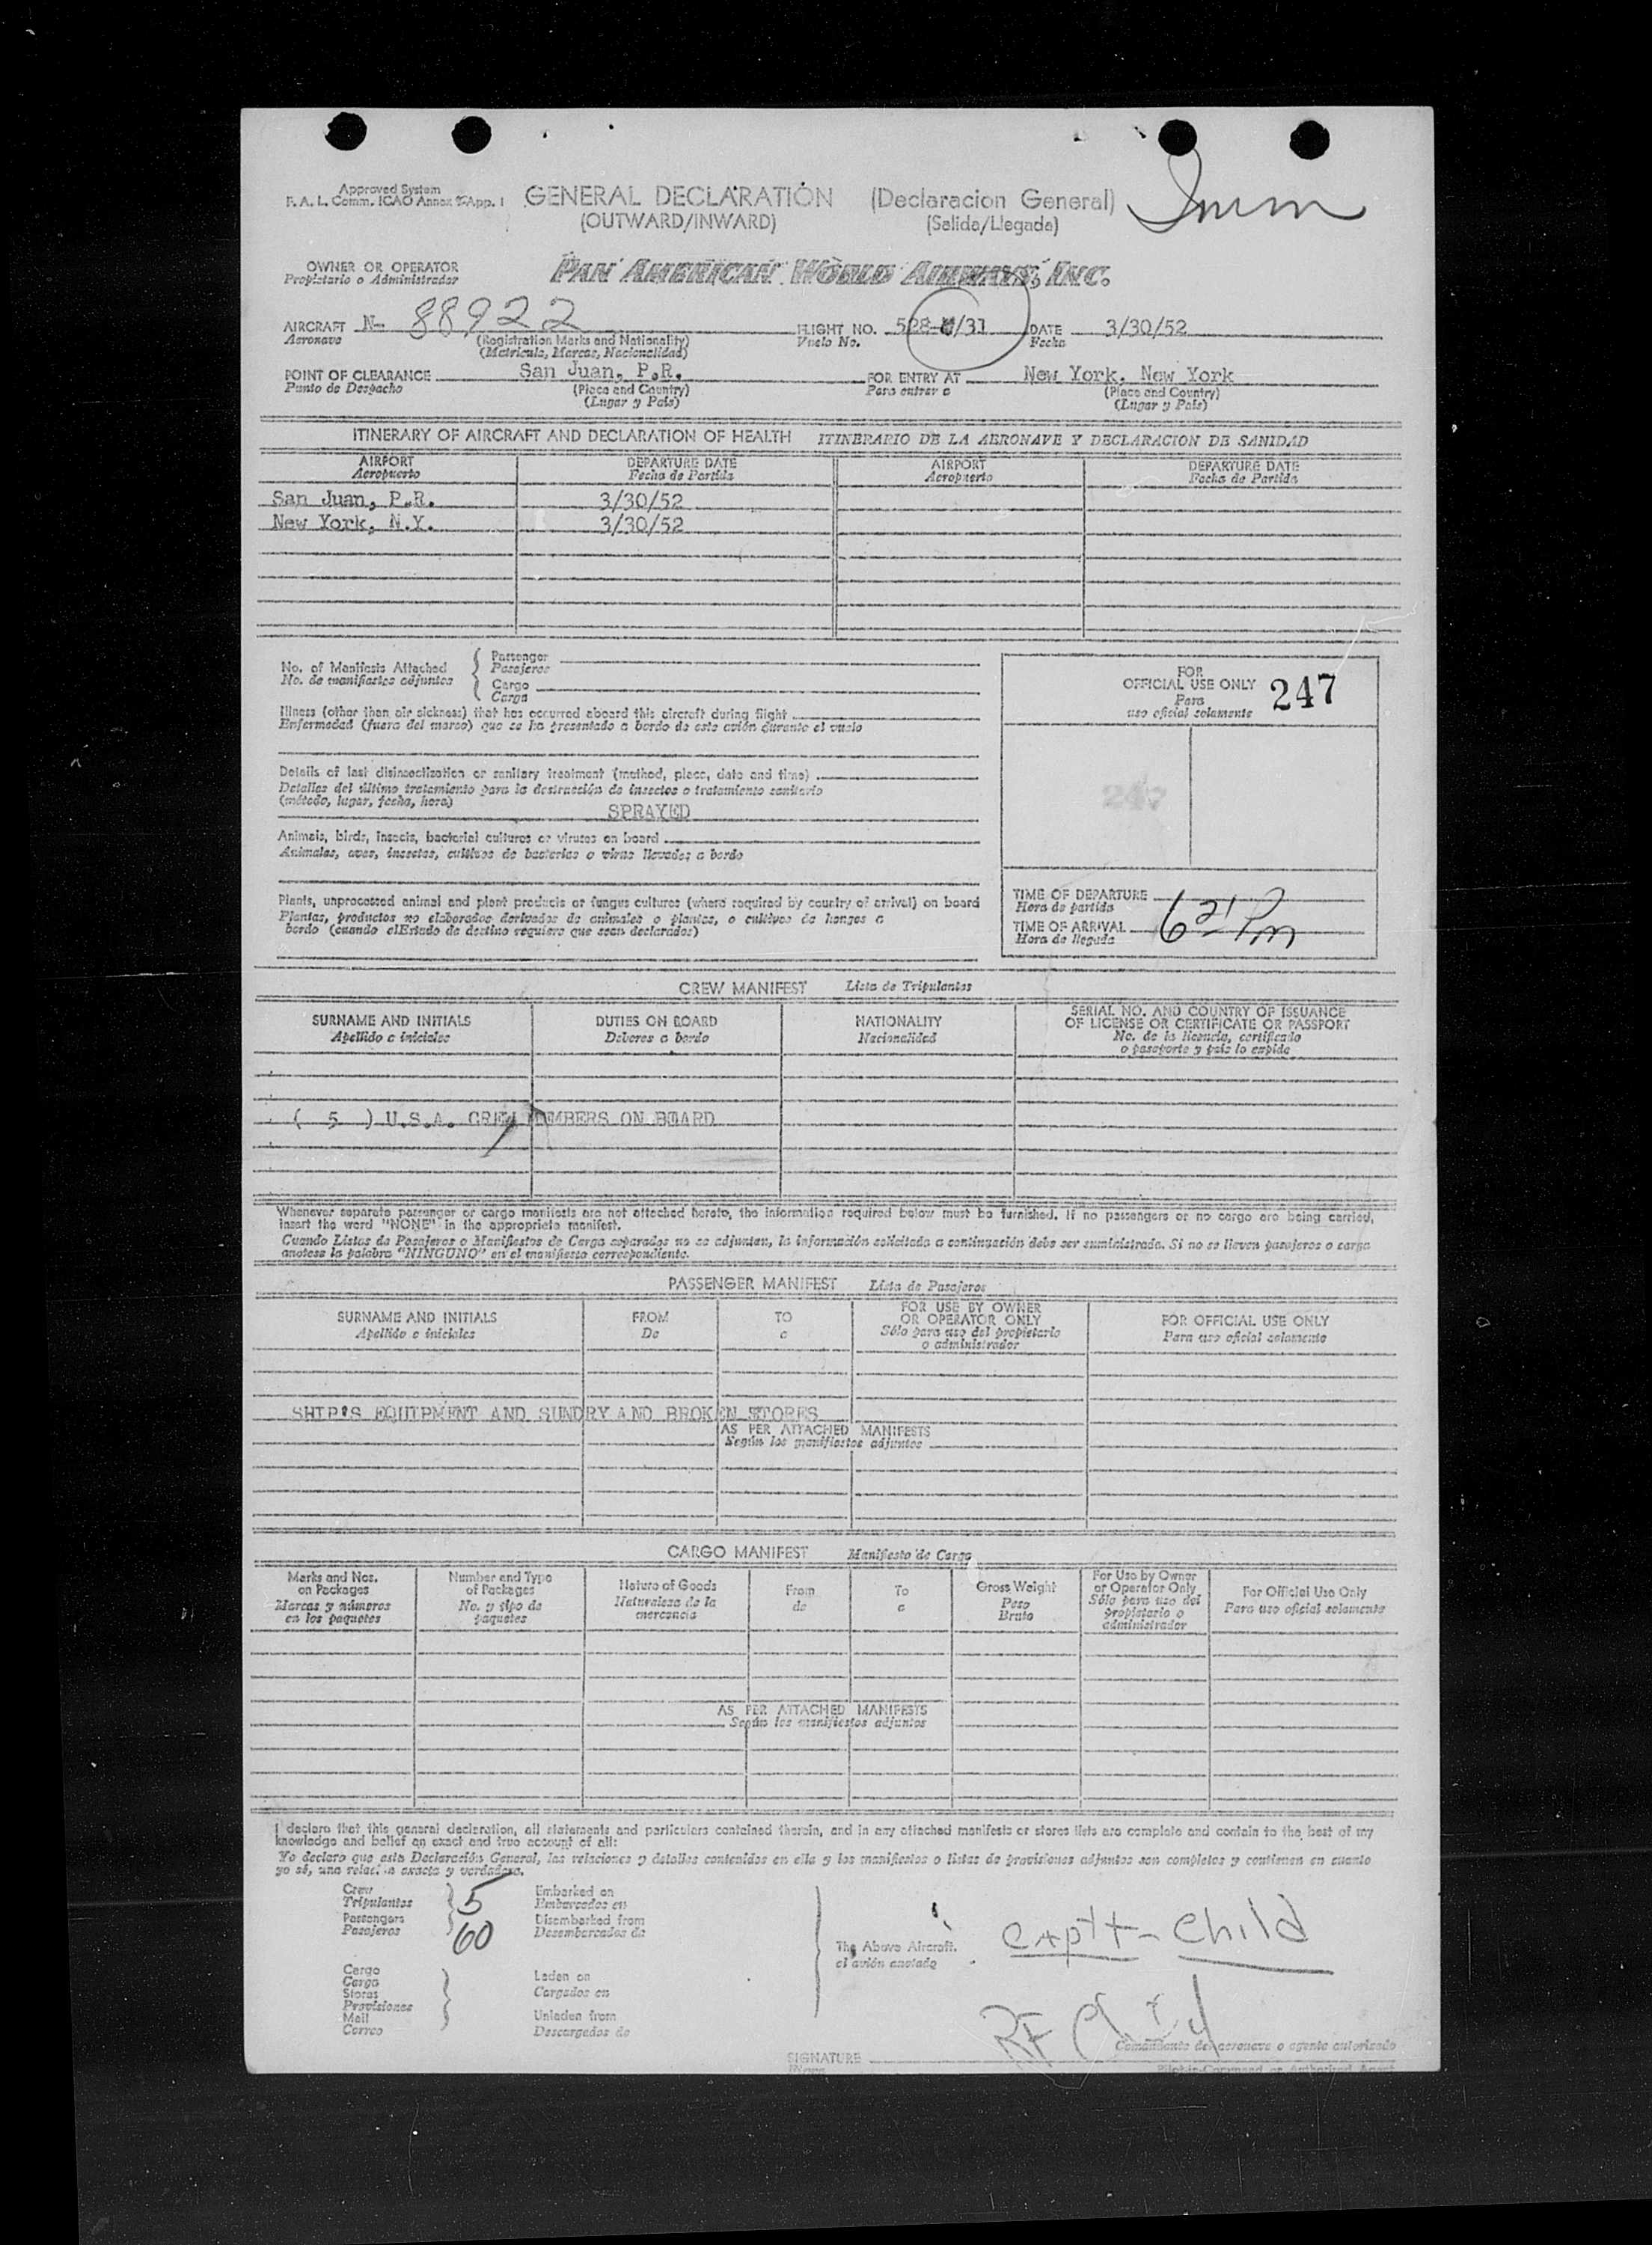 Approved System
F. A. L. Comm. ICAO Annex 9-App. 1
GENERAL DECLARATION (Declaracion General)
(OUTWARD/INWARD) (Salida/Llegada)
Imm
OWNER OR OPERATOR
Propietario o Administrador
PAN AMERICAN WORLD AIRWAYS, INC.
AIRCRAFT N- 88922 FLIGHT NO. 528- /31 DATE 3/30/52
Aeronave (Registration Marks and Nationality) Vuelo No. Fecha
(Matricula, Marcas, Nacionalidad)
POINT OF CLEARANCE San Juan, P.R. FOR ENTRY AT New York, New York
Punto de Despacho (Place and Country) Para entrar a (Place and Country)
(Lugar y Pais) (Lugar y Pais)
ITINERARY OF AIRCRAFT AND DECLARATION OF HEALTH ITINERARIO DE LA AERONAVE Y DECLARACION DE SANIDAD
AIRPORT DEPARTURE DATE AIRPORT DEPARTURE DATE
Aeropuerto Fecha de Partida Aeropuerto Fecha de Partida
San Juan, P.R. 3/30/52
New York, N.Y. 3/30/52
No. of Manifests Attached
No. de manifiestos adjuntos
Passenger
Pasajeros
Cargo
Carga
FOR
OFFICIAL USE ONLY
Para
uso oficial solamente
247
247
Illness (other than air sickness) that has occurred aboard this aircraft during flight
Enfermedad (fuera del mareo) que se ha presentado a bordo de este avión durante el vuelo
Details of last disinsectization or sanitary treatment (method, place, date and time)
Detalles del último tratamiento para la destrucción de insectos o tratamiento sanitario
(método, lugar, fecha, hora)
SPRAYED
Animals, birds, insects, bacterial cultures or viruses on board
Animales, aves, insectos, cultivos de bacterias o virus llevados a bordo
Plants, unprocessed animal and plant products or fungus cultures (where required by country of arrival) on board
Plantas, productos no elaborados derivados de animales o plantas, o cultivos de hongos a
bordo (cuando el Estado de destino requiera que sean declarados)
TIME OF DEPARTURE
Hora de partida
TIME OF ARRIVAL
Hora de llegada
CREW MANIFEST Lista de Tripulantes
SURNAME AND INITIALS DUTIES ON BOARD NATIONALITY SERIAL NO. AND COUNTRY OF ISSUANCE
OF LICENSE OR CERTIFICATE OR PASSPORT
Apellido e iniciales Deberes a bordo Nacionalidad No. de la licencia, certificado
o pasaporte y país lo expide
( 5 ) U.S.A. CREW MEMBERS ON BOARD
Whenever separate passenger or cargo manifests are not attached hereto, the information required below must be furnished. If no passengers or no cargo are being carried,
insert the word "NONE" in the appropriate manifest.
Cuando Listas de Pasajeros o Manifiestos de Carga separados no se adjuntan, la información solicitada a continuación debe ser suministrada. Si no se llevan pasajeros o carga
anotese la palabra "NINGUNO" en el manifiesto correspondiente.
PASSENGER MANIFEST Lista de Pasajeros
SURNAME AND INITIALS FROM TO FOR USE BY OWNER
OR OPERATOR ONLY FOR OFFICIAL USE ONLY
Apellido e iniciales De a Sólo para uso del propietario
o administrador Para uso oficial solamente
SHIP'S EQUIPMENT AND SUNDRY AND BROKEN STORES
AS PER ATTACHED MANIFESTS
Según los manifiestos adjuntos
CARGO MANIFEST Manifiesto de Carga
Marks and Nos.
on Packages
Marcas y números
en los paquetes
Number and Type
of Packages
No. y tipo de
paquetes
Nature of Goods
Naturaleza de la
mercancía
From
de
To
a
Gross Weight
Peso
Bruto
For Use by Owner
or Operator Only
Sólo para uso del
propietario o
administrador
For Official Use Only
Para uso oficial solamente
AS PER ATTACHED MANIFESTS
Según los manifiestos adjuntos
I declare that this general declaration, all statements and particulars contained therein, and in any attached manifests or stores lists are complete and contain to the best of my
knowledge and belief an exact and true account of all:
Yo declaro que esta Declaración General, las relaciones y detalles contenidos en ella y los manifiestos o listas de provisiones adjuntos son completos y contienen en cuanto
yo sé, una relación exacta y verdadera.
Crew
Tripulantes 5
Passengers
Pasajeros 60
Embarked on
Embarcados en
Disembarked from
Desembarcados de
Cargo
Carga
Stores
Provisiones
Mail
Correo
Laden on
Cargados en
Unladen from
Descargados de
The Above Aircraft.
el avión anotado
Capt- Child
RF Child
Comandante de aeronave o agente autorizado
SIGNATURE
Pilot-in-Command or Authorized Agent